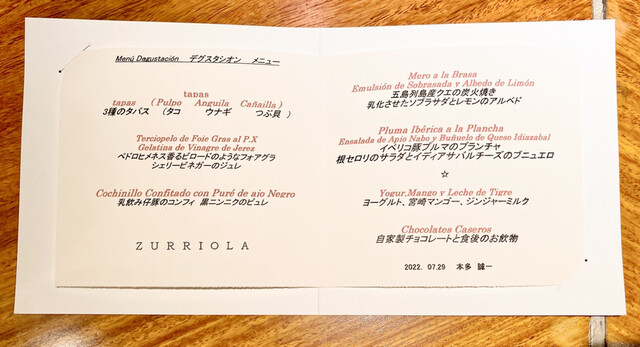 Menú Degustación デグスタシオン メニュー
tapas
tapas (Pulpo Anguila Cañailla)
3種のタパス (タコ ウナギ つぶ貝)
Terciopelo de Foie Gras al P.X
Gelatina de Vinagre de Jerez
ペドロヒメネス香るビロードのようなフォアグラ
シェリービネガーのジュレ
Cochinillo Confitado con Puré de ajo Negro
乳飲み仔豚のコンフィ 黒ニンニクのピュレ
ZURRIOLA
Mero a la Brasa
Emulsión de Sobrasada y Albedo de Limón
五島列島産クエの炭火焼き
乳化させたソブラサダとレモンのアルベド
Pluma Ibérica a la Plancha
Ensalada de Apio Nabo y Buñuelo de Queso Idiazabal
イベリコ豚プルマのプランチャ
根セロリのサラダとイディアサバルチーズのブニュエロ
☆
Yogur,Mango y Leche de Tigre
ヨーグルト、宮崎マンゴー、ジンジャーミルク
Chocolates Caseros
自家製チョコレートと食後のお飲物
2022. 07.29 本多 誠一